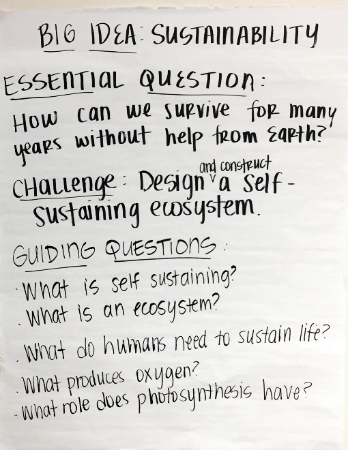 BIG IDEA: SUSTAINABILITY
ESSENTIAL QUESTION:
How can we survive for many
years without help from Earth?
Challenge: Design and construct a self-
sustaining ecosystem.
GUIDING QUESTIONS:
· What is self sustaining?
· What is an ecosystem?
· What do humans need to sustain life?
· What produces oxygen?
· What role does photosynthesis have?